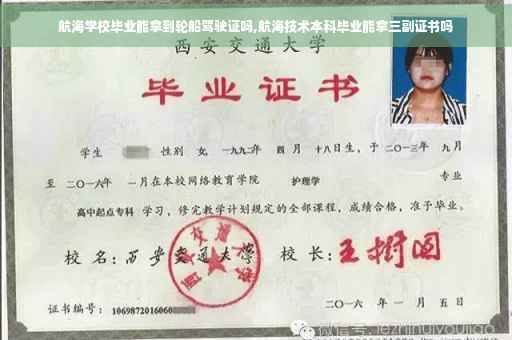 航海学校毕业能拿到轮船驾驶证吗,航海技术本科毕业能拿三副证书吗
西安交通大学
毕业证书
学生 性别 女, 一九九二年 四月 十八日生, 于 二〇一三年 九月
至 二〇一六年 一月在本校网络教育学院 护理学 专业
高中起点专科 学习, 修完教学计划规定的全部课程, 成绩合格, 准予毕业。
校名: 西安交通大学 校长: 王树国
西安交通大学
证书编号: 1069872016060
二〇一六年 一月 五日
微信号: jezhinuiyoujiao